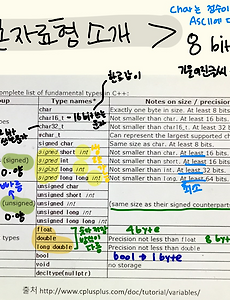 자료형 소개 >
char는 정수이
ASCII에 대
8 bit
omplete list of fundamental types in C++:
oup Type names* Notes on size / precision
char Exactly one byte in size. At least 8 bits.
char16_t = 16bit 문자 Not smaller than char. At least 16 bits.
char32_t Not smaller than char16_t. At least 32 bits.
wchar_t Can represent the largest supported cha
signed char Same size as char. At least 8 bits.
signed short int Not smaller than char. At least 16 bits.
(signed) signed int Not smaller than short. At least 16 bits.
signed long int Not smaller than int. At least 32 bits.
signed long long int Not smaller than long. At least 64 bits.
최소
unsigned char
unsigned short int
(unsigned) unsigned int (same size as their signed counterparts)
unsigned long int
unsigned long long int
float 4 byte
types double Precision not less than float 8 byte
long double Precision not less than double
bool bool → 1 byte
void no storage
decltype(nullptr)
출처 http://www.cplusplus.com/doc/tutorial/variables/